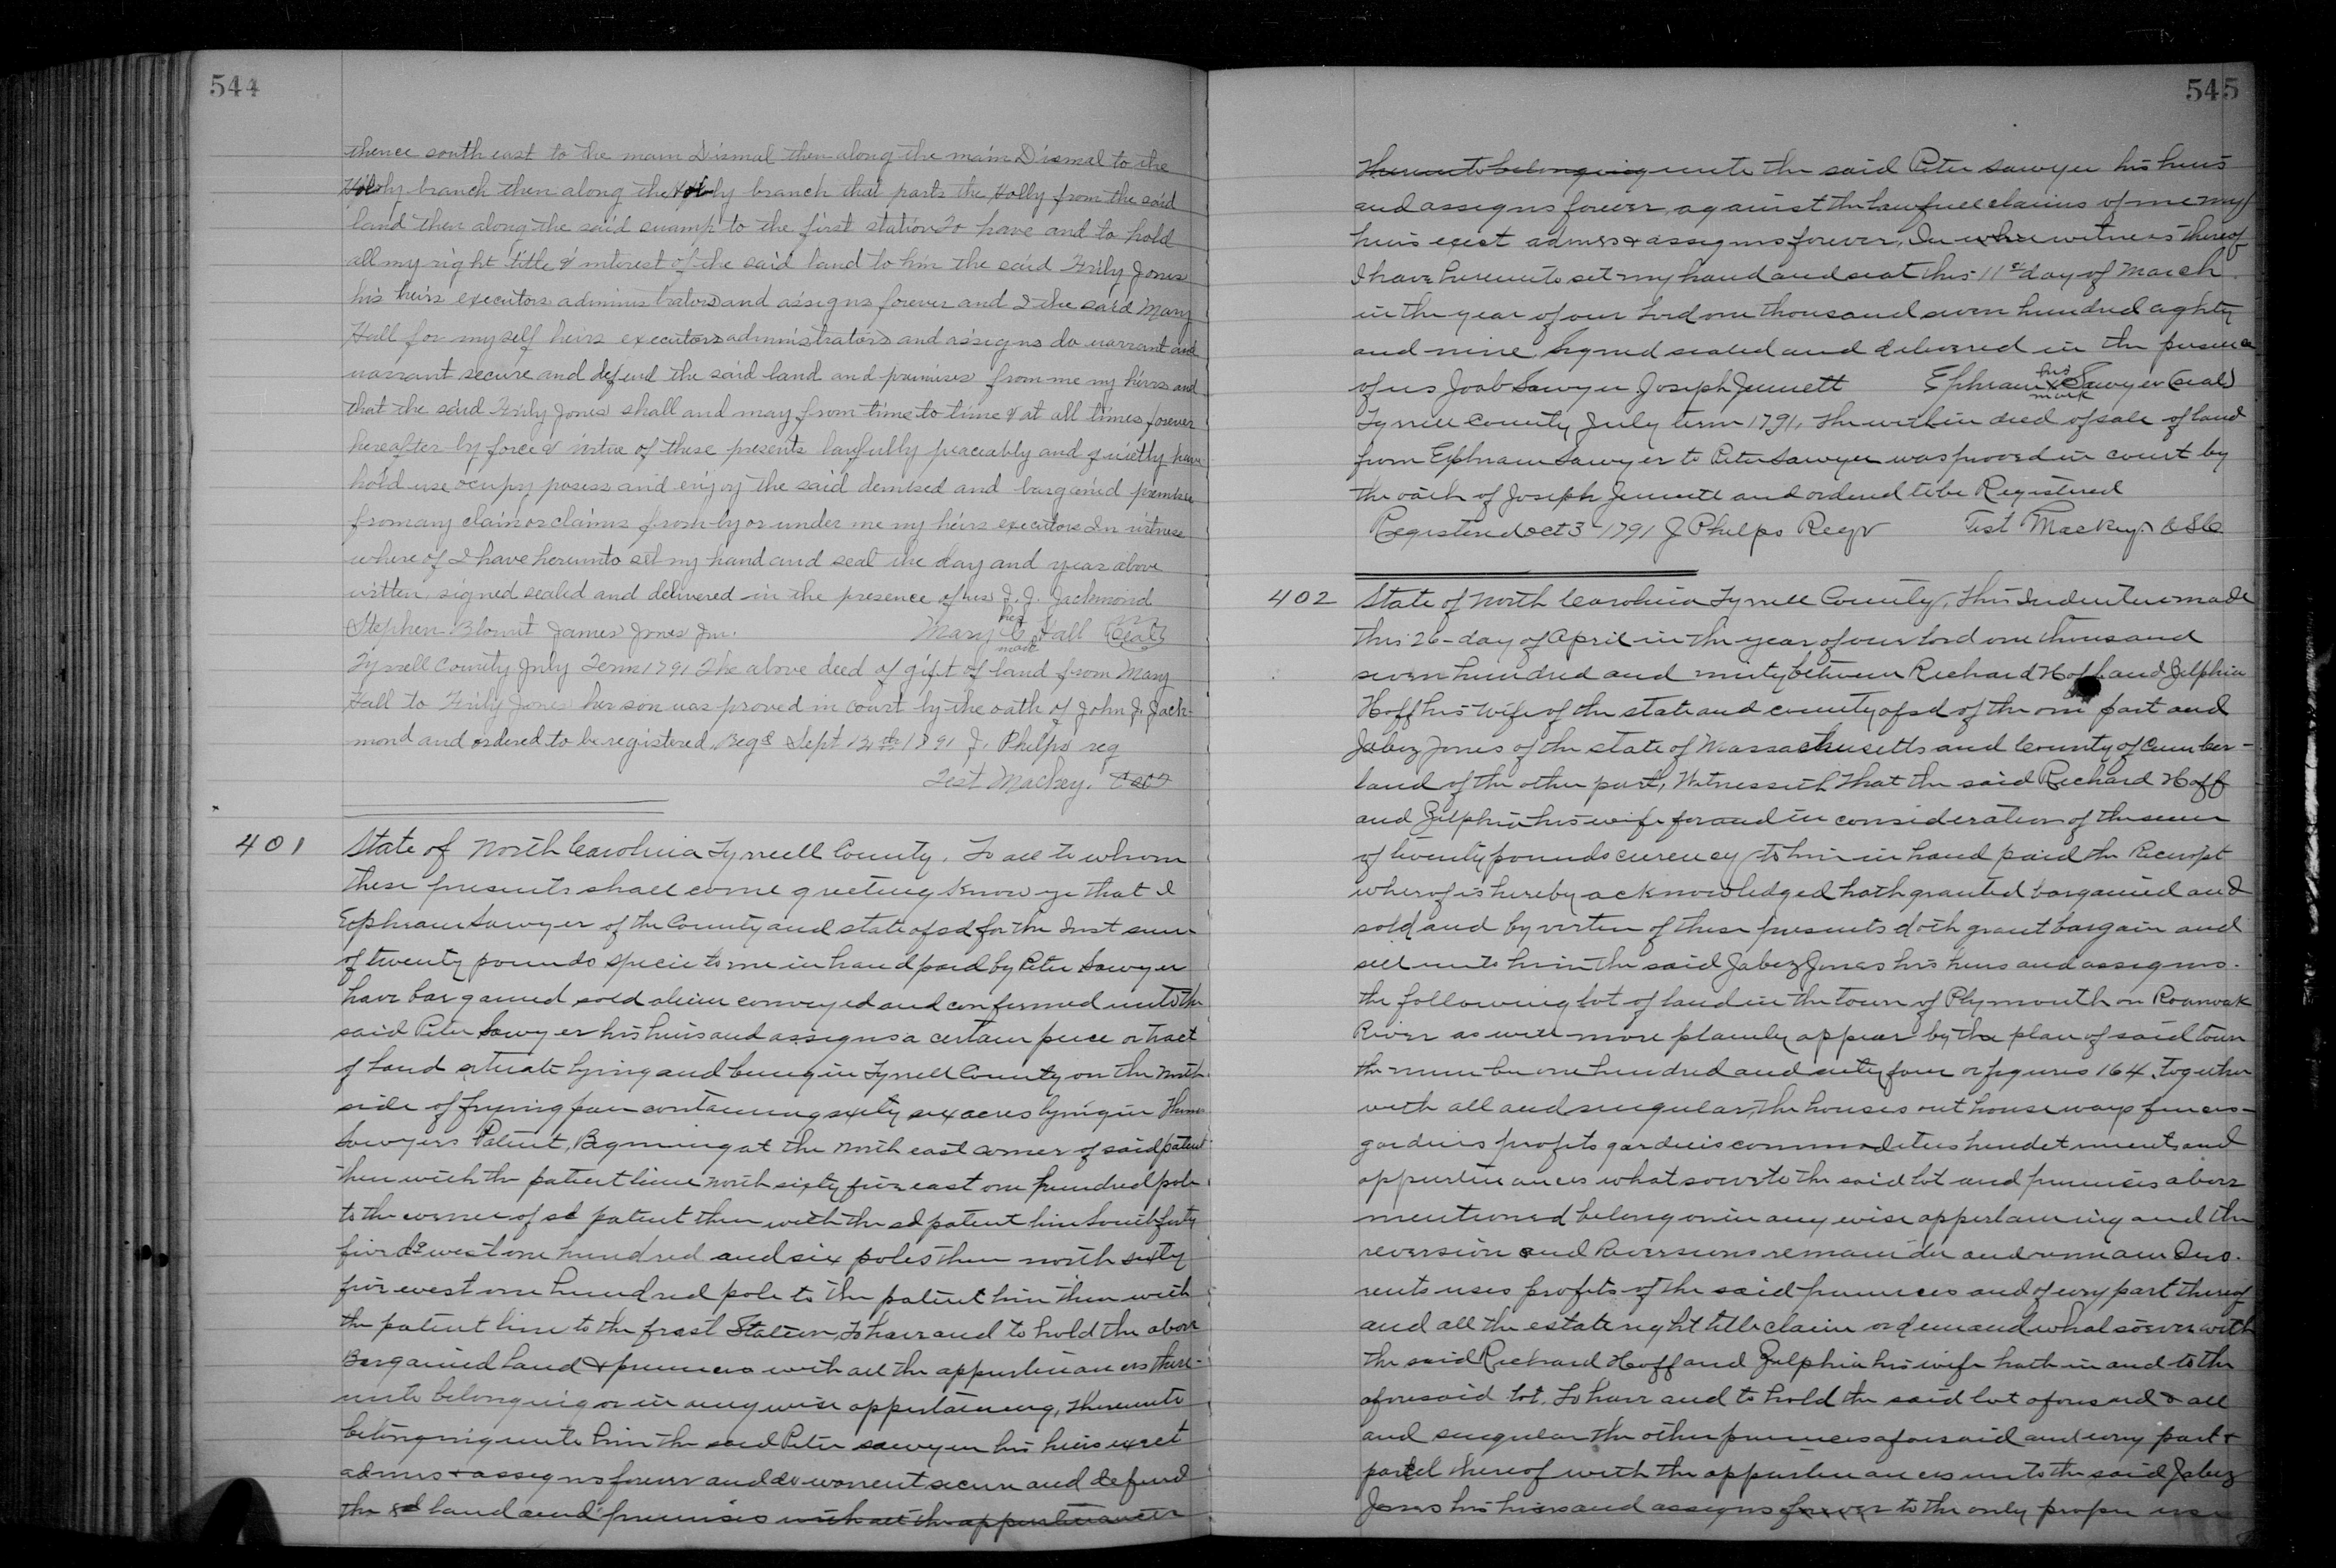 544
thence south east to the main Dismal then along the main Dismal to the
Holly branch then along the Holly branch that parts the Holly from the said
land then along the said swamp to the first station To have and to hold
all my right title & interest of the said land to him the said Frily Jones
his heirs executors administrators and assigns forever and I the said Mary
Hall for myself heirs executors administrators and assigns do warrant and
warrant secure and defend the said land and premises from me my heirs and
that the said Frily Jones shall and may from time to time & at all times forever
hereafter by force & virtue of these presents lawfully peaceably and quietly have
hold use ocupy posess and enjoy the said demised and bargained premises
from any claim or claims from by or under me my heirs executors In witness
where of I have hereunto set my hand and seal the day and year above
written signed sealed and delivered in the presence of us J. J. Jackmond
Stephen Blount James Jones Jnr. Mary her C mark Hall (Seal)
Tyrrell County July Term 1791 The above deed of gift of land from Mary
Hall to Frily Jones her son was proved in court by the oath of John J. Jack-
mond and ordered to be registered. Regd Sept 12th 1791 J. Phelps reg
Test Mackey.
401 State of North Carolina Tyrrell County. To all to whom
these presents shall come greeting know ye that I
Ephraim Sawyer of the County and state afsd for the Just sum
of twenty pounds specie to me in hand paid by Peter Sawyer
have bargained sold alien conveyed and confirmed unto the
said Peter Sawyer his heirs and assigns a certain piece or tract
of land situate lying and being in Tyrrell County on the North
side of frying pan containing sixty six acres lying in
Sawyers Patent, Begining at the north east corner of said patent
then with the patent line north sixty five east one hundred pole
to the corner of sd patent then with the sd patent line South forty
five dg west one hundred and six poles then north sixty
five west one hundred pole to the patent line then with
the patent line to the frast Station, To have and to hold the above
Bargained Land & premises with all the appurtinances there-
unto belonging or in any wise appertaining, thereunto
belonging unto him the said Peter sawyer his heirs exect
admrs & assigns forever and do warrent secure and defend
the sd land and premises with all the appurtinances
545
thereunto belonging unto the said Peter Sawyer his heirs
and assigns forever against the lawfull claims of me my
heirs exect admrs & assigns forever. In whi witness thereof
I have hereunto set my hand and seat this 11st day of March
in the year of our Lord one thousand seven hundred aghty
and nine Signed sealed and delivered in the presence
of us Joab Sawyer Joseph Jennett Ephraim his X mark Sawyer (seal)
Tyrrell County July term 1791, The within deed of sale of land
from Ephraim Sawyer to Peter Sawyer was proved in court by
the oath of Joseph Jennett and ordered to be Registered
Registered Oct 3 1791 J Phelps Regr Test Mackey. CSC
402 State of North Carolina Tyrrell County, This Indenture made
this 26 - day of April in the year of our lord one thousand
seven hundred and ninty between Richard Hoff and Zilphia
Hoff his wife of the state and county afsd of the one part and
Jabez Jones of the state of Massachusetts and County of Cumber-
land of the other part, Witnesseth that the said Richard Hoff
and Zilphia his wife for and in consideration of the sum
of twenty pounds curency to him in hand paid the Receipt
wherof is hereby acknowledged hath granted bargained and
sold and by virtue of these presents doth grant bargain and
sell unto him the said Jabez Jones his heirs and assigns.
the following lot of land in the town of Plymouth on Roanoak
River as will more plainly appear by the plan of said town
the number one hundred and sixty four or figures 164. Together
with all and singular, the houses out house ways fences-
gardens profits gardens commodities hereditments and
appurtinances what soever to the said lot and premises above
mentioned belong or in any wise appertaining and the
reversion and Reversions remainder and remainders.
rents uses profits of the said premises and of every part thereof
and all the estate right title claim or demand what soever with
the said Richard Hoff and Zilphia his wife hath in and to the
aforesaid lot. To have and to hold the said lot aforesaid & all
and singular the other premises aforesaid and every part &
parcel thereof with the appurtinances unto the said Jabez
Jones his hiers and assigns forever to the only proper use